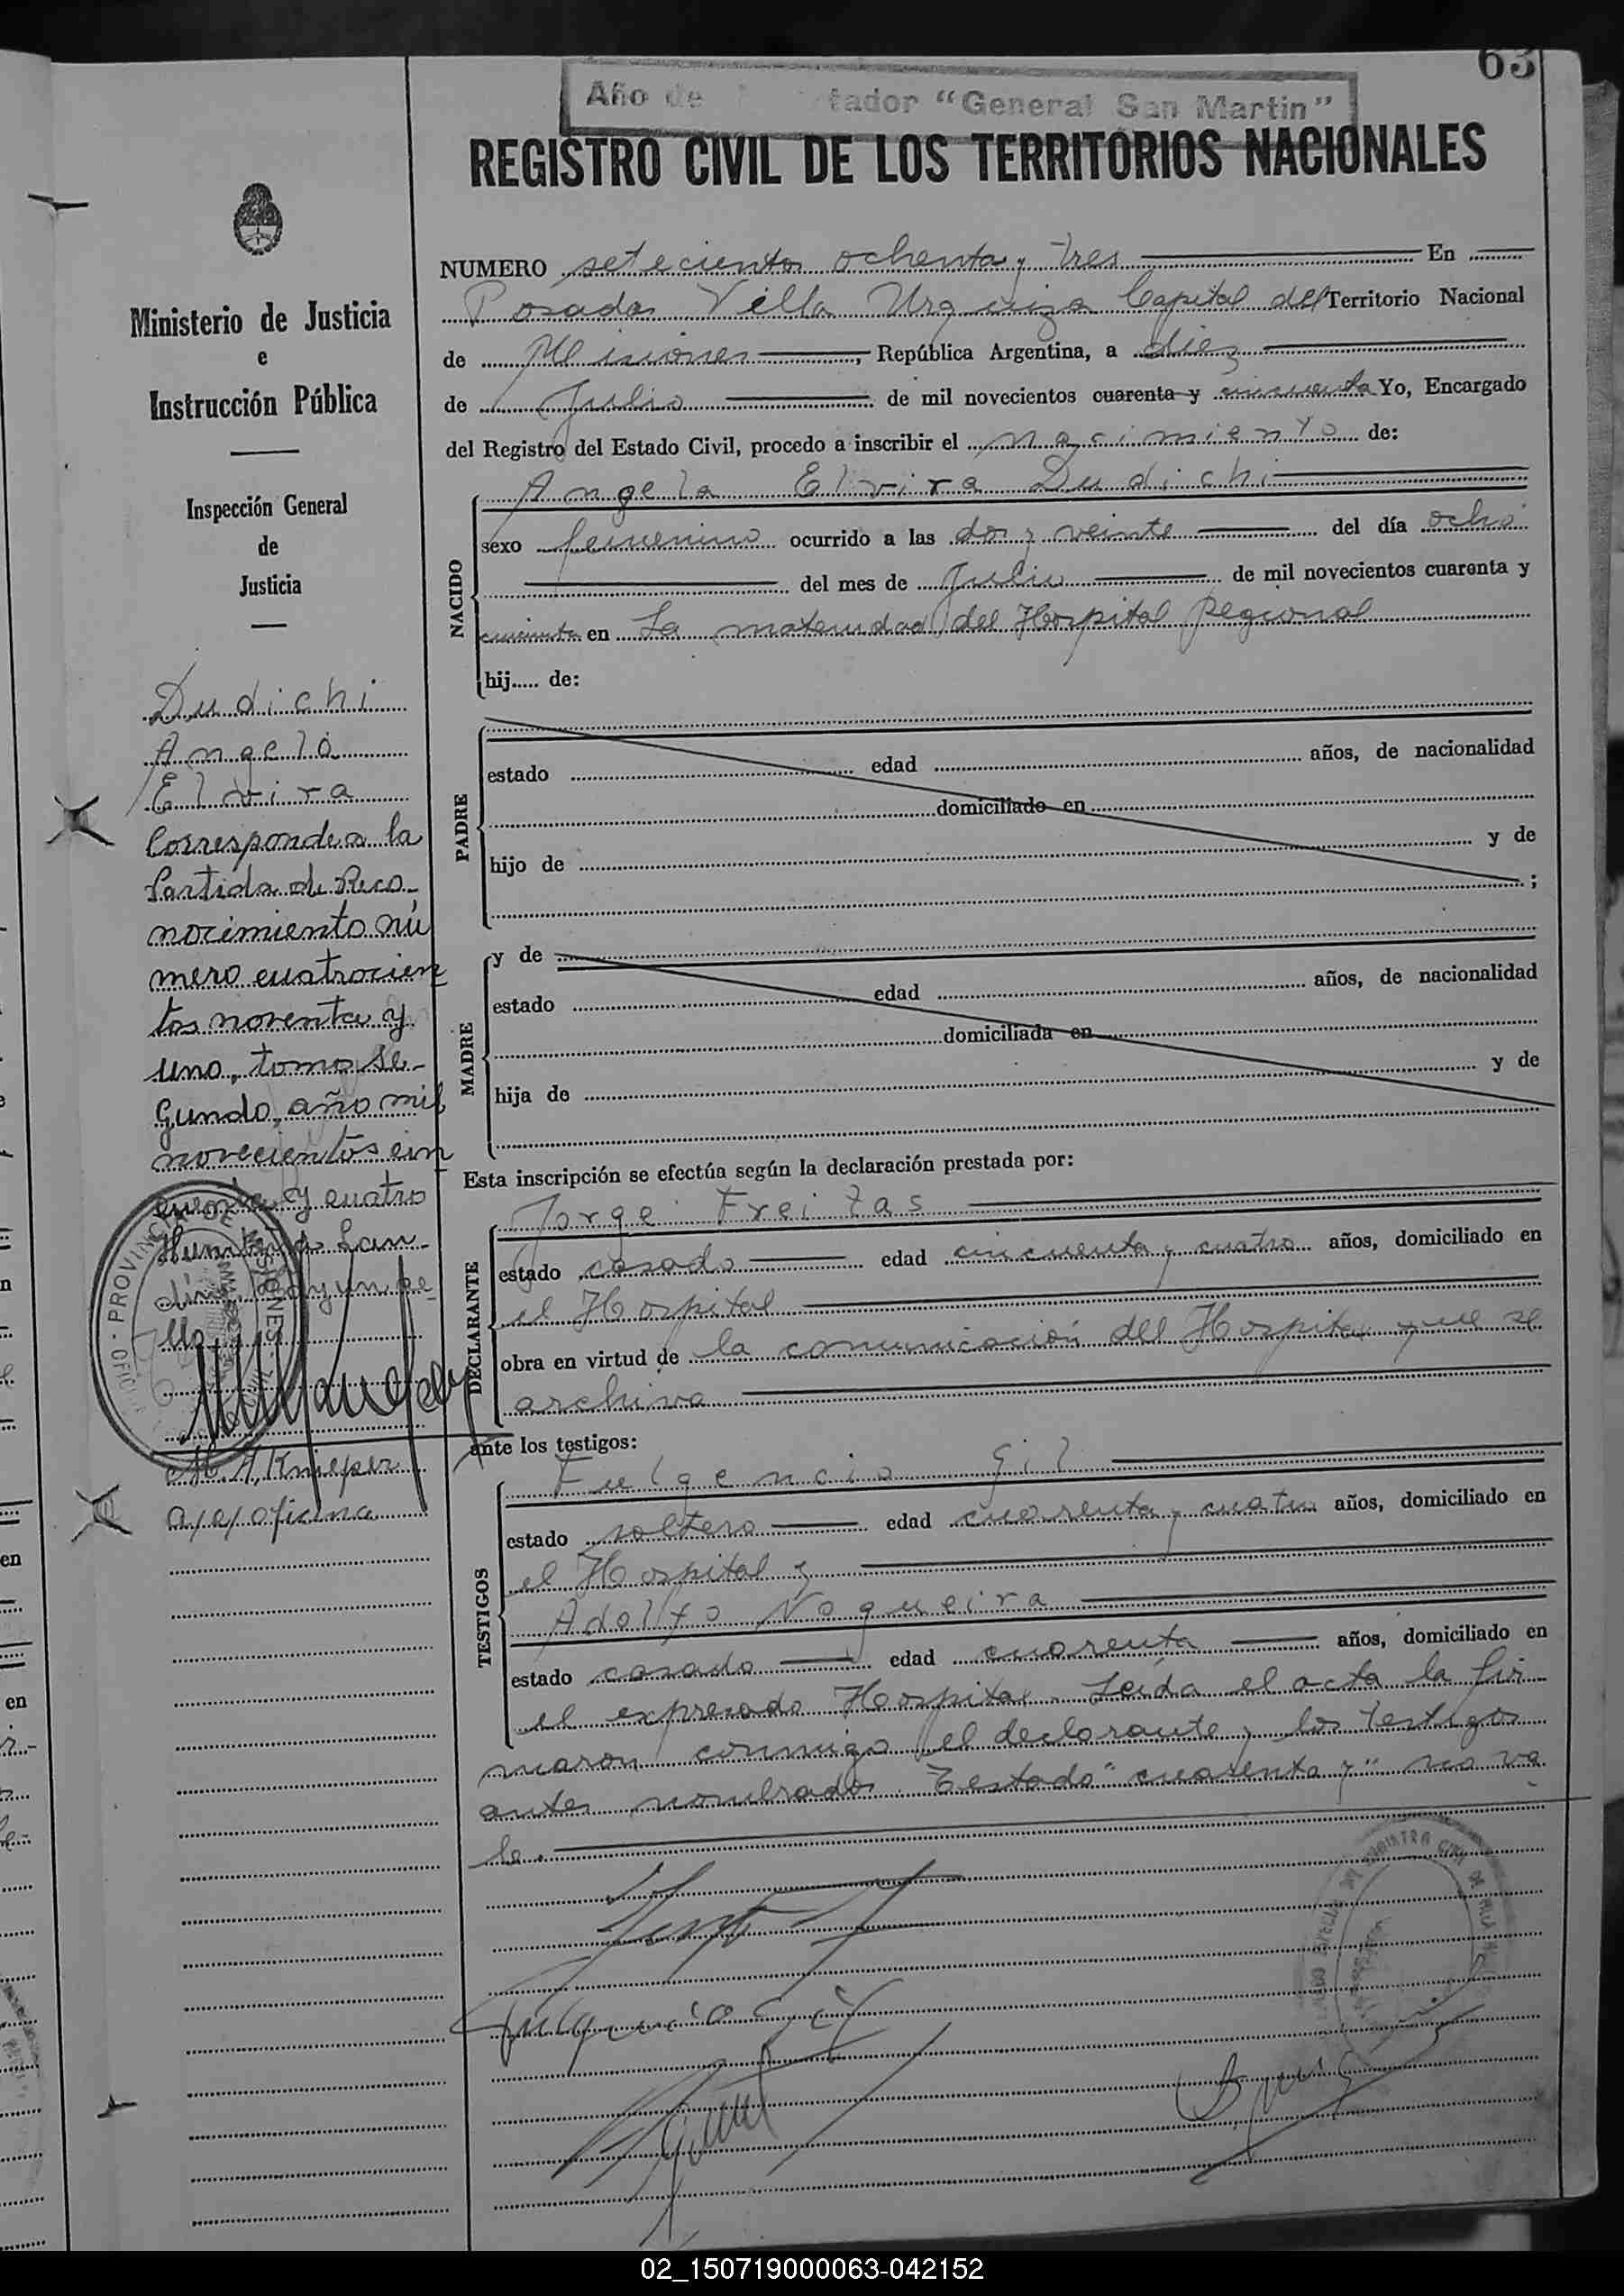 63
Año de tador "General San Martin"
REGISTRO CIVIL DE LOS TERRITORIOS NACIONALES
NUMERO setecientos ochenta y tres En
Posadas Villa Urquiza Capital del Territorio Nacional
de Misiones, República Argentina, a diez
de Julio de mil novecientos cuarenta y cincuenta Yo, Encargado
del Registro del Estado Civil, procedo a inscribir el nacimiento de:
Angela Elvira Dudichi
NACIDO
sexo femenino ocurrido a las dos y veinte del día ocho
del mes de Julio de mil novecientos cuarenta y
cincuenta en La maternidad del Hospital Regional
hij..... de:
PADRE
estado edad años, de nacionalidad
domiciliado en
hijo de y de
;
MADRE
y de
estado edad años, de nacionalidad
domiciliada en
hija de y de
Esta inscripción se efectúa según la declaración prestada por:
Jorge Freitas
DECLARANTE
estado casado edad cincuenta y cuatro años, domiciliado en
el Hospital
obra en virtud de la comunicación del Hospital que se
archiva
ante los testigos:
Fulgencio Gil
TESTIGOS
estado soltero edad cuarenta y cuatro años, domiciliado en
el Hospital y
Adolfo Nogueira
estado casado edad cuarenta años, domiciliado en
el expresado Hospital. Leída el acta la fir-
maron conmigo el declarante y los testigos
antes nombrados. Testado "cuarenta y" no va
le.
Fulgencio Gil
Ministerio de Justicia
e
Instrucción Pública
Inspección General
de
Justicia
Dudichi
Angela
Elvira
Corresponde a la
Partida de Reco-
nocimiento nú
mero cuatrocien
tos noventa y
uno, tomo se-
gundo, año mil
novecientos cin
cuenta y cuatro
PROVINCIA DE MISIONES
M. A. Knieper
a/c/ oficina
02_150719000063-042152